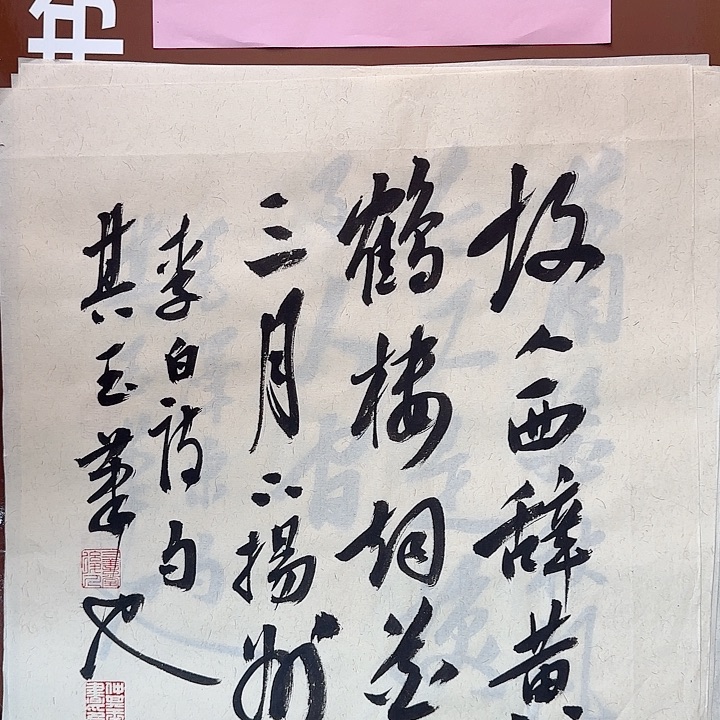 故人西辞黄
鶴楼烟花
三月下揚州
李白诗句
其玉筆也